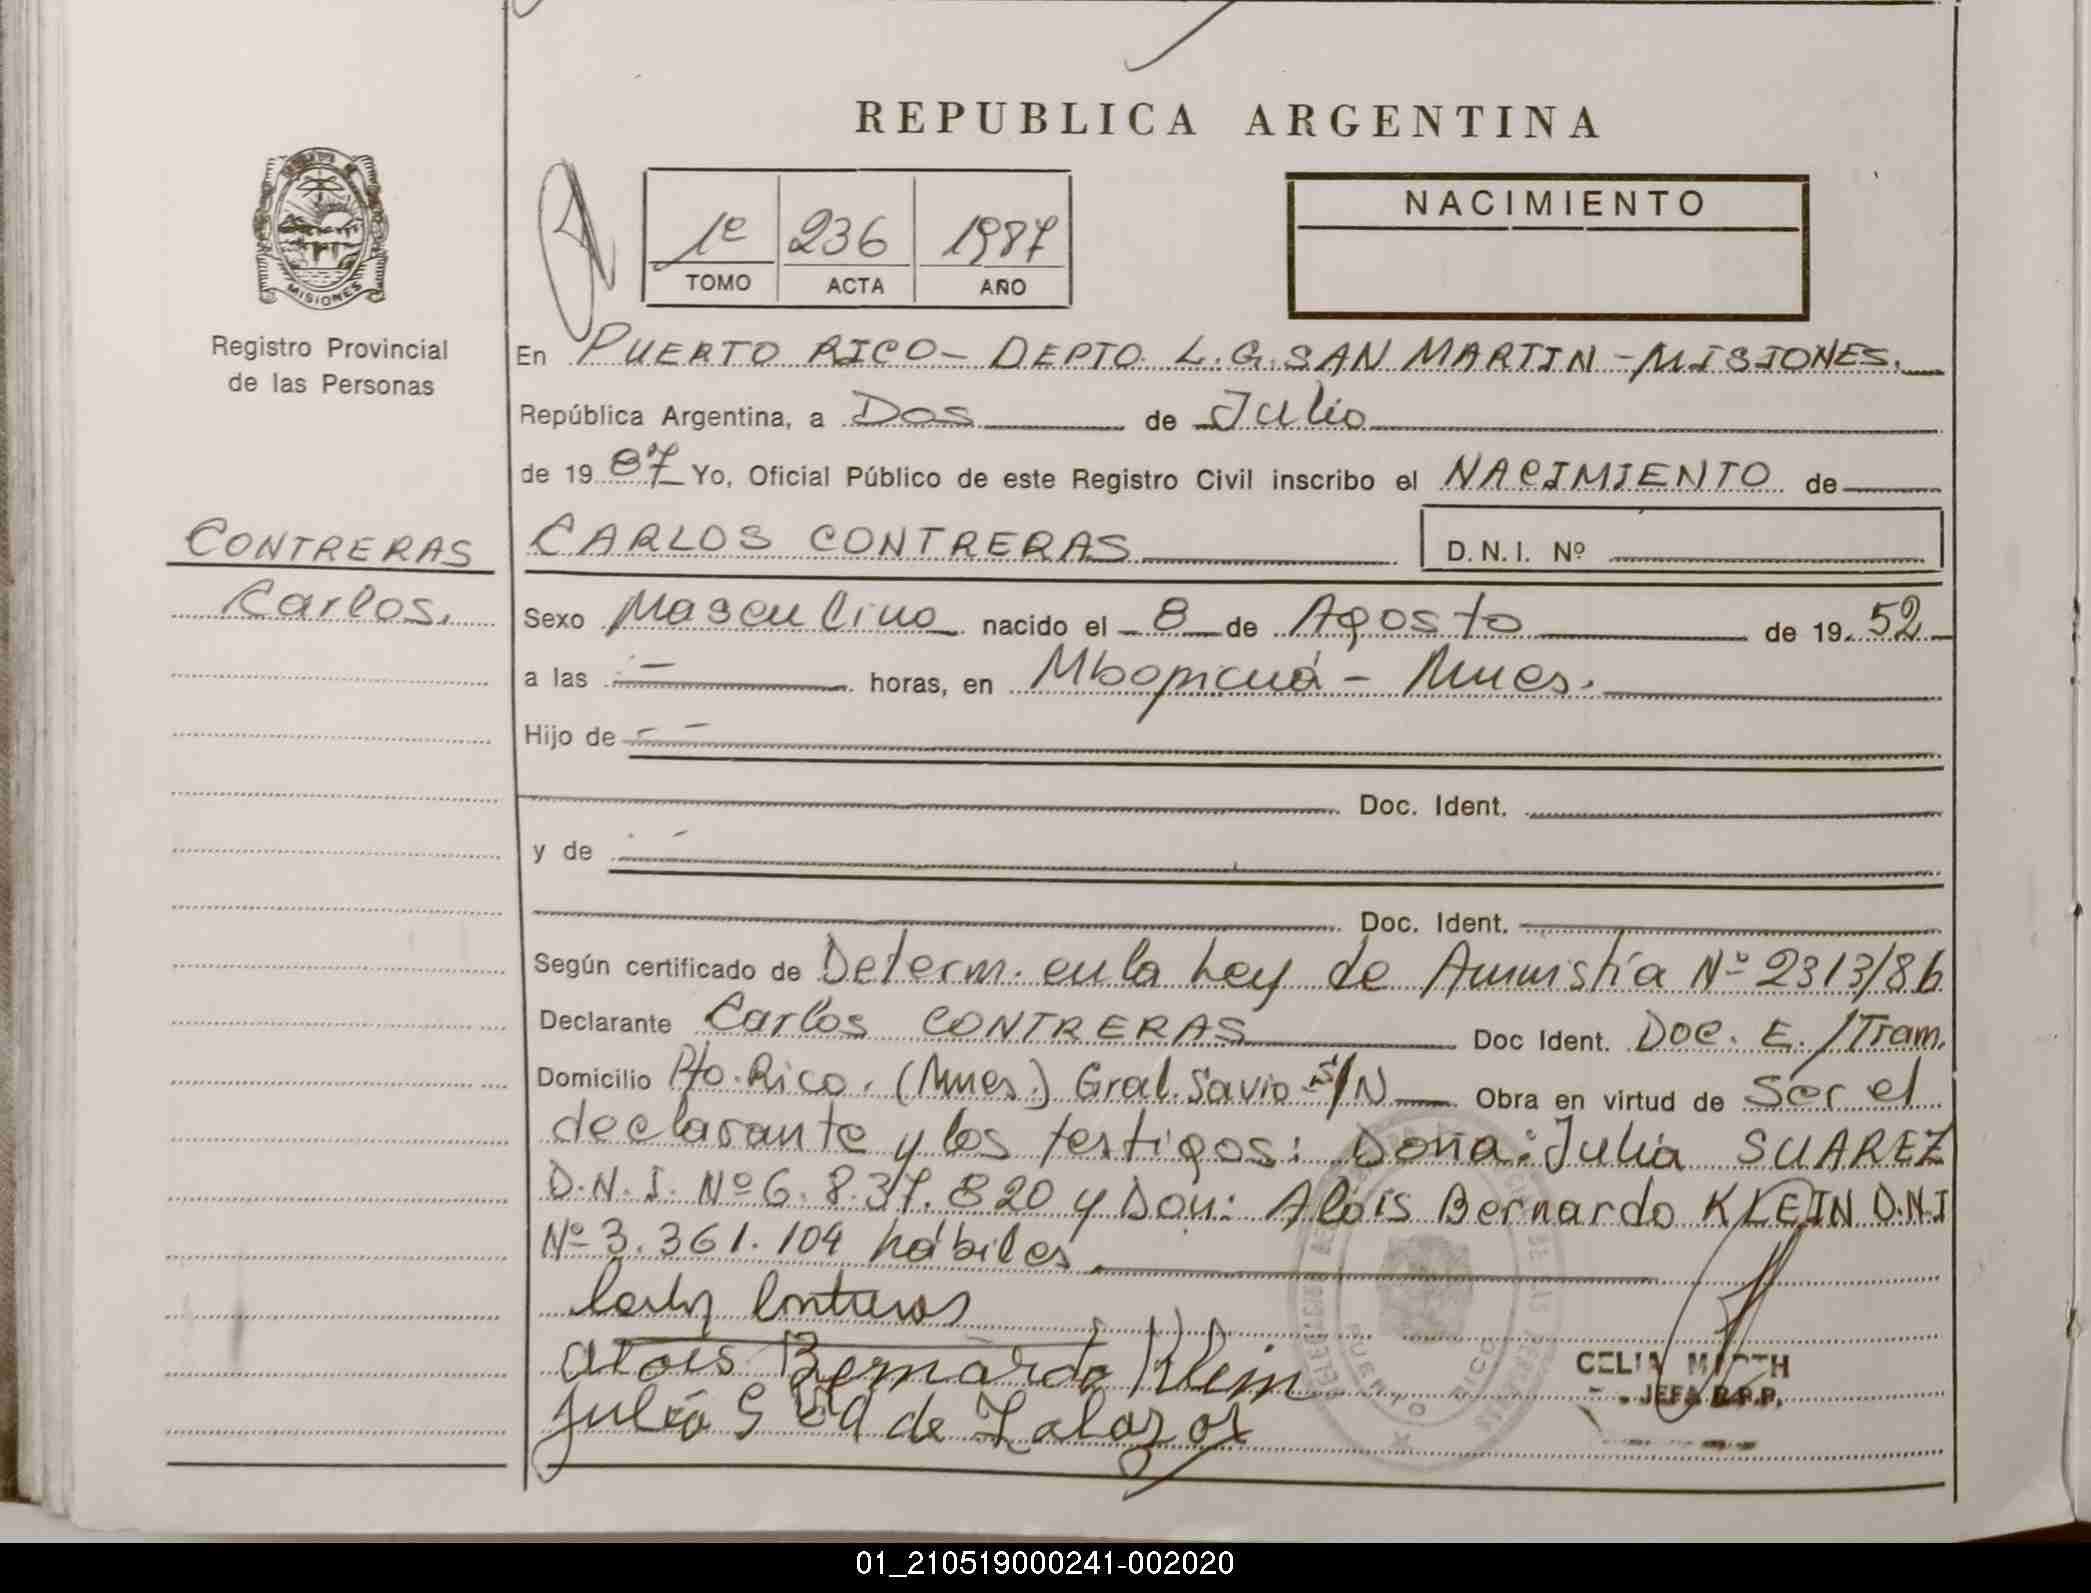 REPUBLICA ARGENTINA
MISIONES
Registro Provincial
de las Personas
1º 236 1987
TOMO ACTA AÑO
NACIMIENTO
En PUERTO RICO - DEPTO. L.G. SAN MARTIN - MISIONES.
República Argentina, a Dos de Julio
de 19 87 Yo, Oficial Público de este Registro Civil inscribo el NACIMIENTO de
CONTRERAS
Carlos.
CARLOS CONTRERAS D.N.I. Nº
Sexo Masculino nacido el 8 de Agosto de 19 52
a las — horas, en Mbopicuá - Mnes.
Hijo de - -
Doc. Ident.
y de
Doc. Ident.
Según certificado de Determ. en la Ley de Amnistía Nº 2313/86
Declarante Carlos CONTRERAS Doc Ident. Doc. E./Tram.
Domicilio Pto. Rico. (Mnes.) Gral. Savio S/N Obra en virtud de Ser el
declarante y los testigos: Doña: Julia SUAREZ
D.N.I. Nº 6.837.820 y Don: Alois Bernardo KLEIN D.N.I
Nº 3.361.104 hábiles
Carlos Contreras
Alois Bernardo Klein
Julia de Zalazar
CELIA
JEFA R.P.P.
PUERTO RICO
01_210519000241-002020